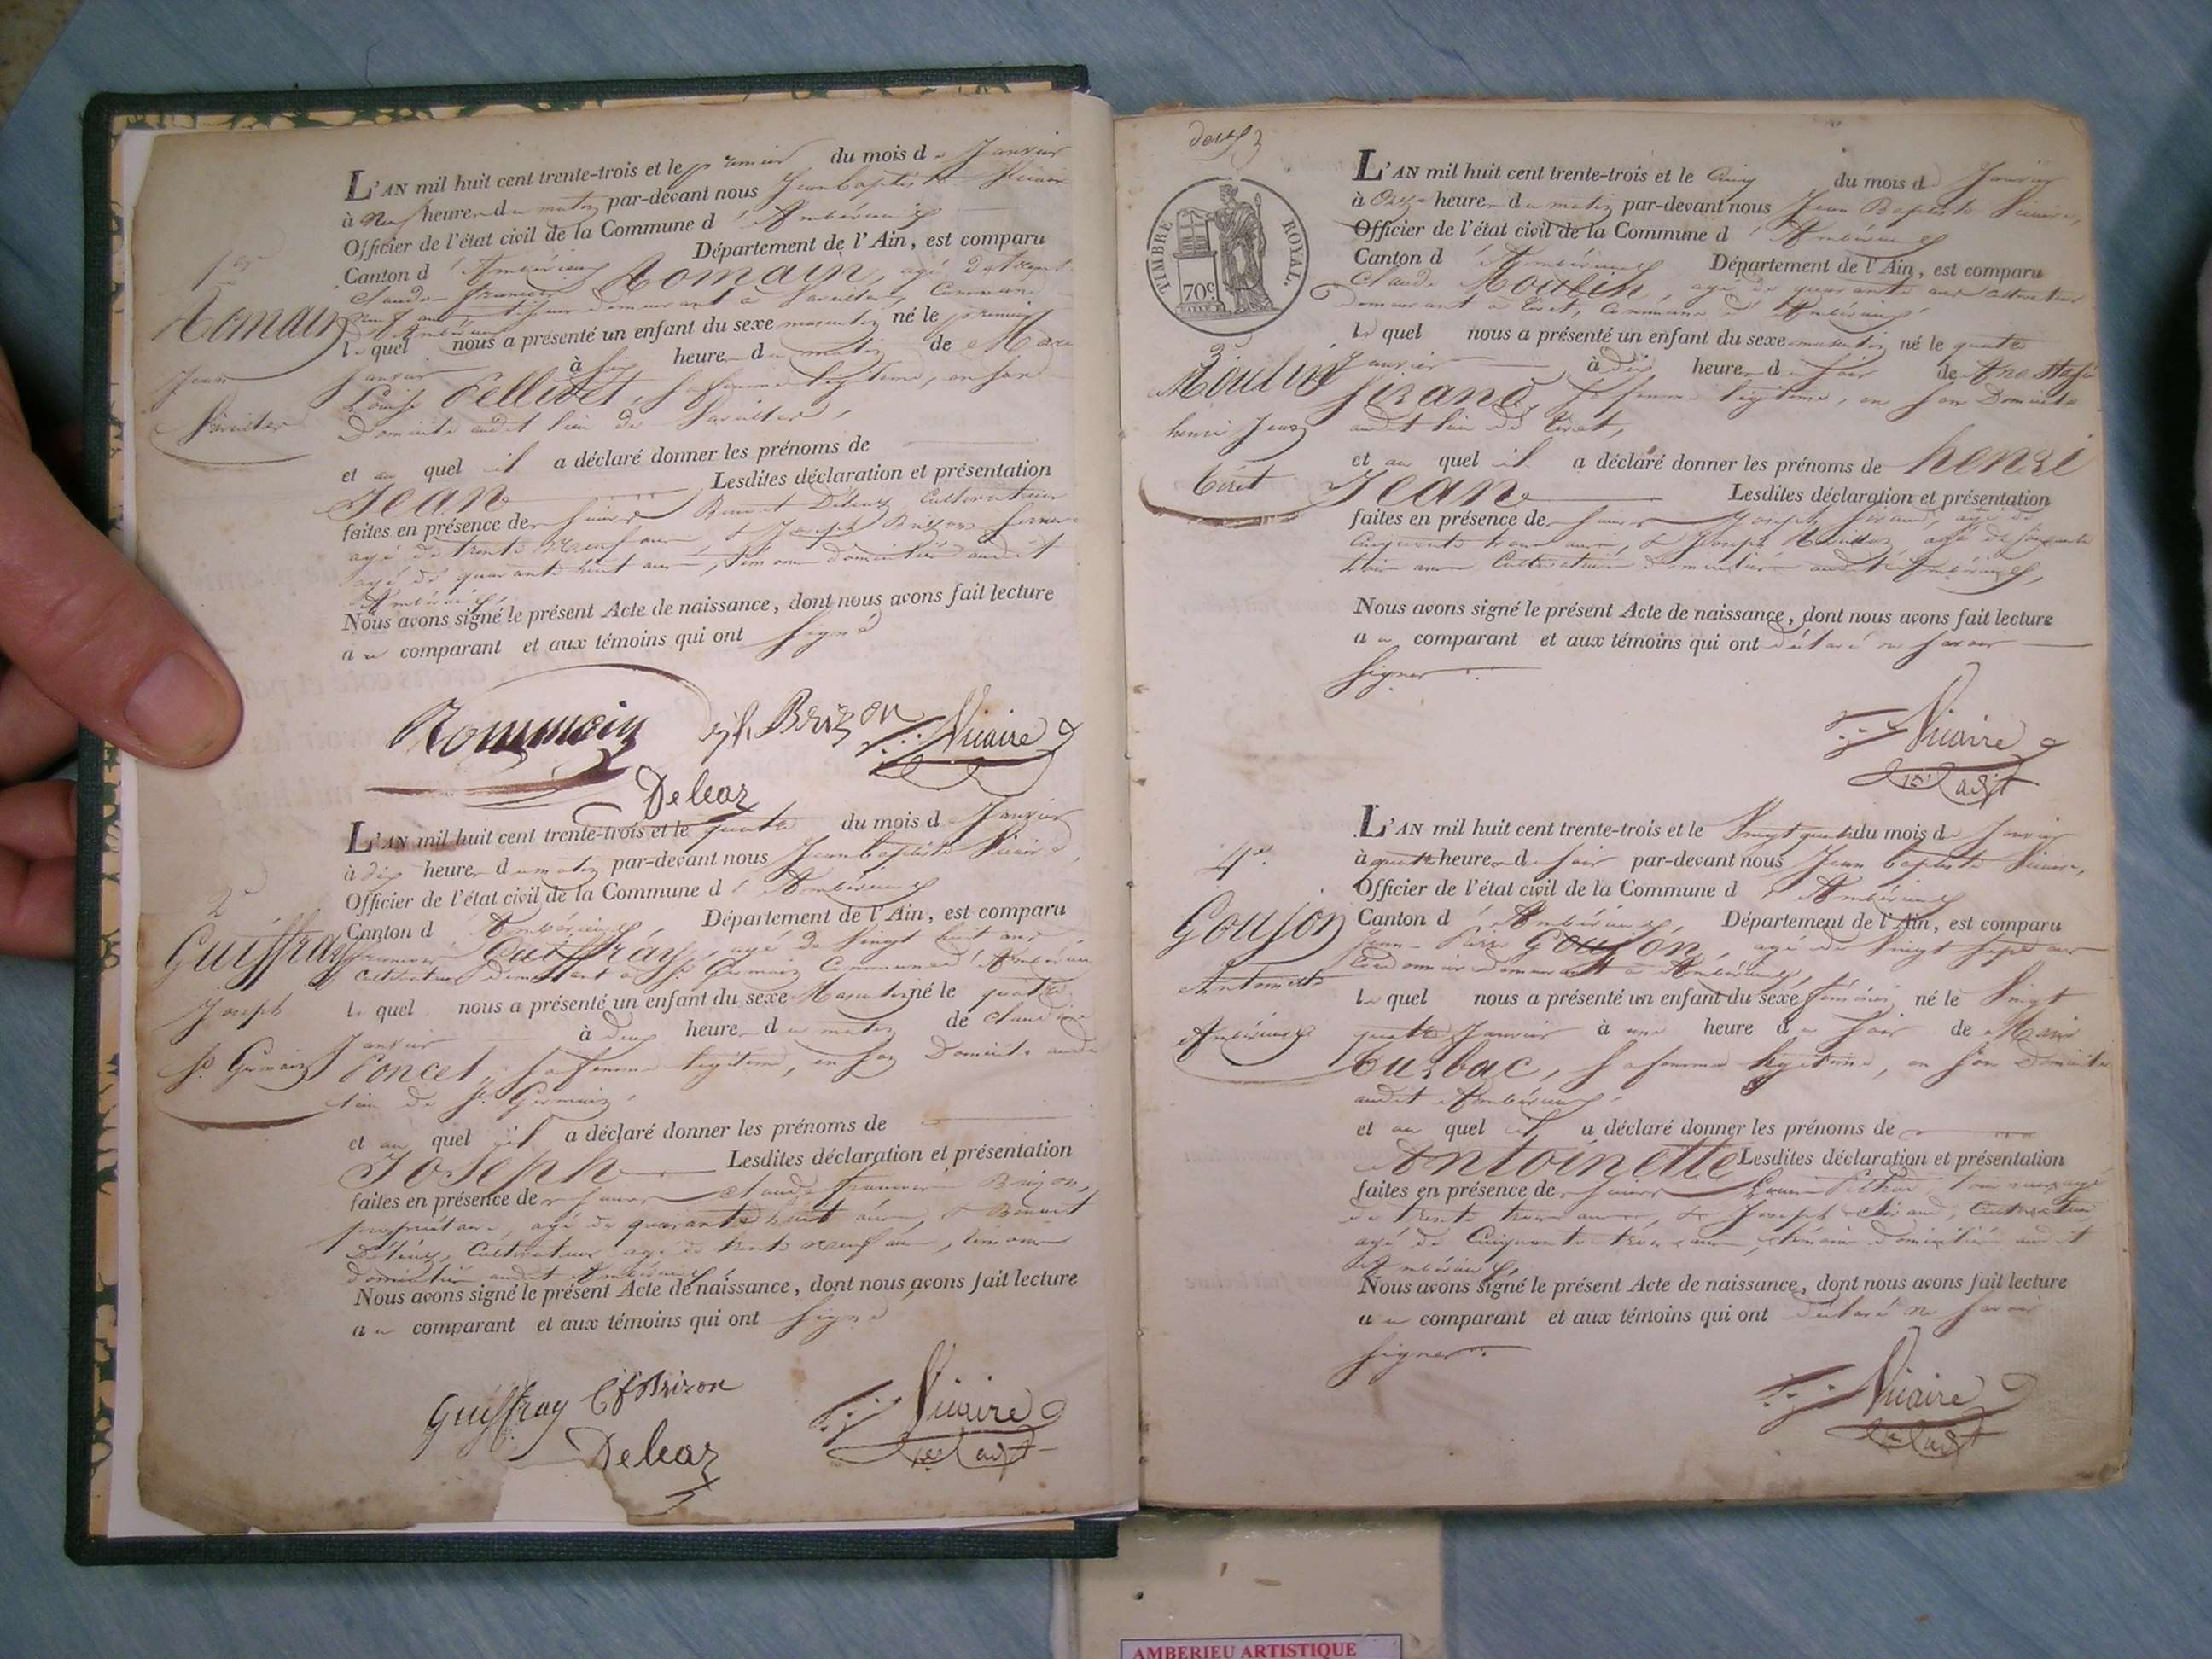 1er
Romain
Jean
L'AN mil huit cent trente-trois et le premier du mois de Janvier
à neuf heures du matin par-devant nous Jean baptiste Vicaire
Officier de l'état civil de la Commune d'Ambérieux
Canton d'Ambérieux Département de l'Ain, est comparu
Claude françois Romain, agé de trente
neuf ans demeurant à Commune
d'Ambérieux
le quel nous a présenté un enfant du sexe masculin né le premier
Janvier à six heures du matin de Marie
Louise Pellivet, sa femme légitime, en son
Domicile audit lieu de
et au quel il a déclaré donner les prénoms de
Jean Lesdites déclaration et présentation
faites en présence de sieurs Benoit Cultivateur
agé de trente neuf ans, & Joseph Brizon
agé de quarante huit ans, témoins domiciliés audit
Ambérieux,
Nous avons signé le présent Acte de naissance, dont nous avons fait lecture
au comparant et aux témoins qui ont signé
Rommain Jh Brizon Vicaire
Deleaz
2e
Guiffray
Joseph
St Germain
L'AN mil huit cent trente-trois et le quatre du mois de Janvier
à dix heures du matin par-devant nous Jean baptiste Vicaire,
Officier de l'état civil de la Commune d'Ambérieux
Canton d'Ambérieux, Département de l'Ain, est comparu
françois Guiffray, agé de Vingt huit ans
cultivateur demeurant à St Germain Commune d'Ambérieux
le quel nous a présenté un enfant du sexe Masculin né le quatre
Janvier à deux heures du matin de Claudine
Poncet, sa femme légitime, en son Domicile audit
lieu de St Germain,
et au quel il a déclaré donner les prénoms de
Joseph Lesdites déclaration et présentation
faites en présence de sieurs Claude françois Brizon,
propriétaire, agé de quarante huit ans, & Benoit
Cultivateur agé de trente neuf ans, témoins
domiciliés audit Ambérieux,
Nous avons signé le présent Acte de naissance, dont nous avons fait lecture
au comparant et aux témoins qui ont signé
Guiffray Cf Brizon Vicaire
Deleaz
TIMBRE ROYAL.
70c
3e
Moulin
henri Jean
L'AN mil huit cent trente-trois et le Cinq du mois de Janvier
à Onze heures du matin par-devant nous Jean Baptiste Vicaire,
Officier de l'état civil de la Commune d'Ambérieux
Canton d'Ambérieux Département de l'Ain, est comparu
Claude Moulin, agé de quarante ans cultivateur
demeurant à Commune d'Ambérieux
le quel nous a présenté un enfant du sexe masculin né le quatre
Janvier à dix heures du soir de Anasthasie
Sirand, sa femme légitime, en son Domicile
audit lieu de
et au quel il a déclaré donner les prénoms de henri
Jean Lesdites déclaration et présentation
faites en présence de sieurs Joseph Sirand, agé de
Cinquante trois ans, & Joseph agé de soixante
trois ans Cultivateurs domiciliés audit Ambérieux,
Nous avons signé le présent Acte de naissance, dont nous avons fait lecture
au comparant et aux témoins qui ont déclaré ne savoir
signer
Vicaire
4e
Goujon
Antoinette
Ambérieux
L'AN mil huit cent trente-trois et le Vingt quatre du mois de Janvier
à quatre heures du soir par-devant nous Jean baptiste Vicaire,
Officier de l'état civil de la Commune d'Ambérieux
Canton d'Ambérieux, Département de l'Ain, est comparu
Jean Pierre Goujon, agé de Vingt sept ans
Cordonnier demeurant à Ambérieux,
le quel nous a présenté un enfant du sexe féminin né le Vingt
quatre Janvier à une heure du soir de Marie
Curbac, sa femme légitime, en son Domicile
audit Ambérieux,
et au quel il a déclaré donner les prénoms de
Antoinette Lesdites déclaration et présentation
faites en présence de sieurs Louis agé
de trente trois ans, & Joseph Sirand, Cultivateur
agé de Cinquante trois ans, témoins domiciliés audit
Ambérieux,
Nous avons signé le présent Acte de naissance, dont nous avons fait lecture
au comparant et aux témoins qui ont déclaré ne savoir
signer
Vicaire
AMBERIEU ARTISTIQUE